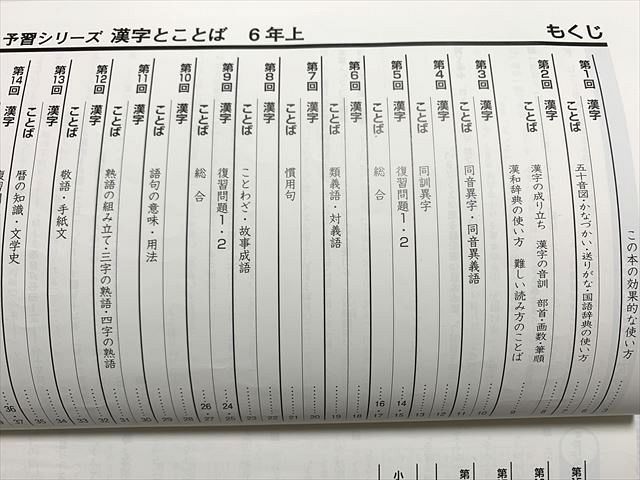 予習シリーズ 漢字とことば 6年上 もくじ
この本の効果的な使い方
第1回 漢字
ことば 五十音図・かなづかい・送りがな・国語辞典の使い方
第2回 漢字 漢字の成り立ち 漢字の音訓 部首・画数・筆順 8
ことば 漢和辞典の使い方 難しい読み方のことば 9
第3回 漢字 10
ことば 同音異字・同音異義語 11
第4回 漢字 12
ことば 同訓異字 13
第5回 漢字 復習問題1・2 14・15
ことば 総合 16・17
第6回 漢字 18
ことば 類義語・対義語 19
第7回 漢字 20
ことば 慣用句 21
第8回 漢字 22
ことば ことわざ・故事成語 23
第9回 漢字 復習問題1・2 24・25
ことば 総合 26・27
第10回 漢字 28
ことば 語句の意味・用法 29
第11回 漢字 30
ことば 熟語の組み立て・三字の熟語・四字の熟語 31
第12回 漢字 32
ことば 敬語・手紙文 33
第13回 漢字 34
ことば 暦の知識・文学史 35
第14回 漢字 36